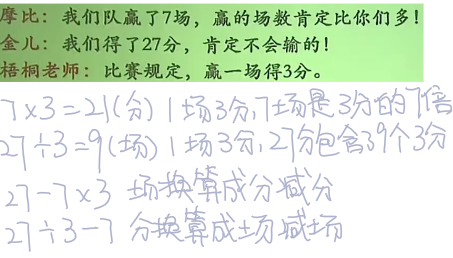 摩比：我们队赢了7场，赢的场数肯定比你们多！
金儿：我们得了27分，肯定不会输的！
梧桐老师：比赛规定，赢一场得3分。
7×3=21(分) 1场3分,7场是3分的7倍
27÷3=9(场) 1场3分,27分包含39个3分
27-7×3 场换算成分减分
27÷3-7 分换算成场减场